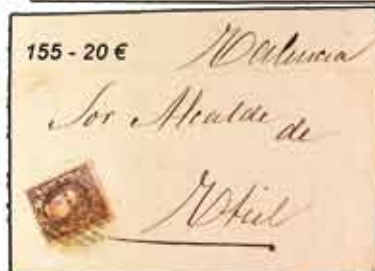 155 - 20 €
Valencia
Sor Alcalde
de
Utiel